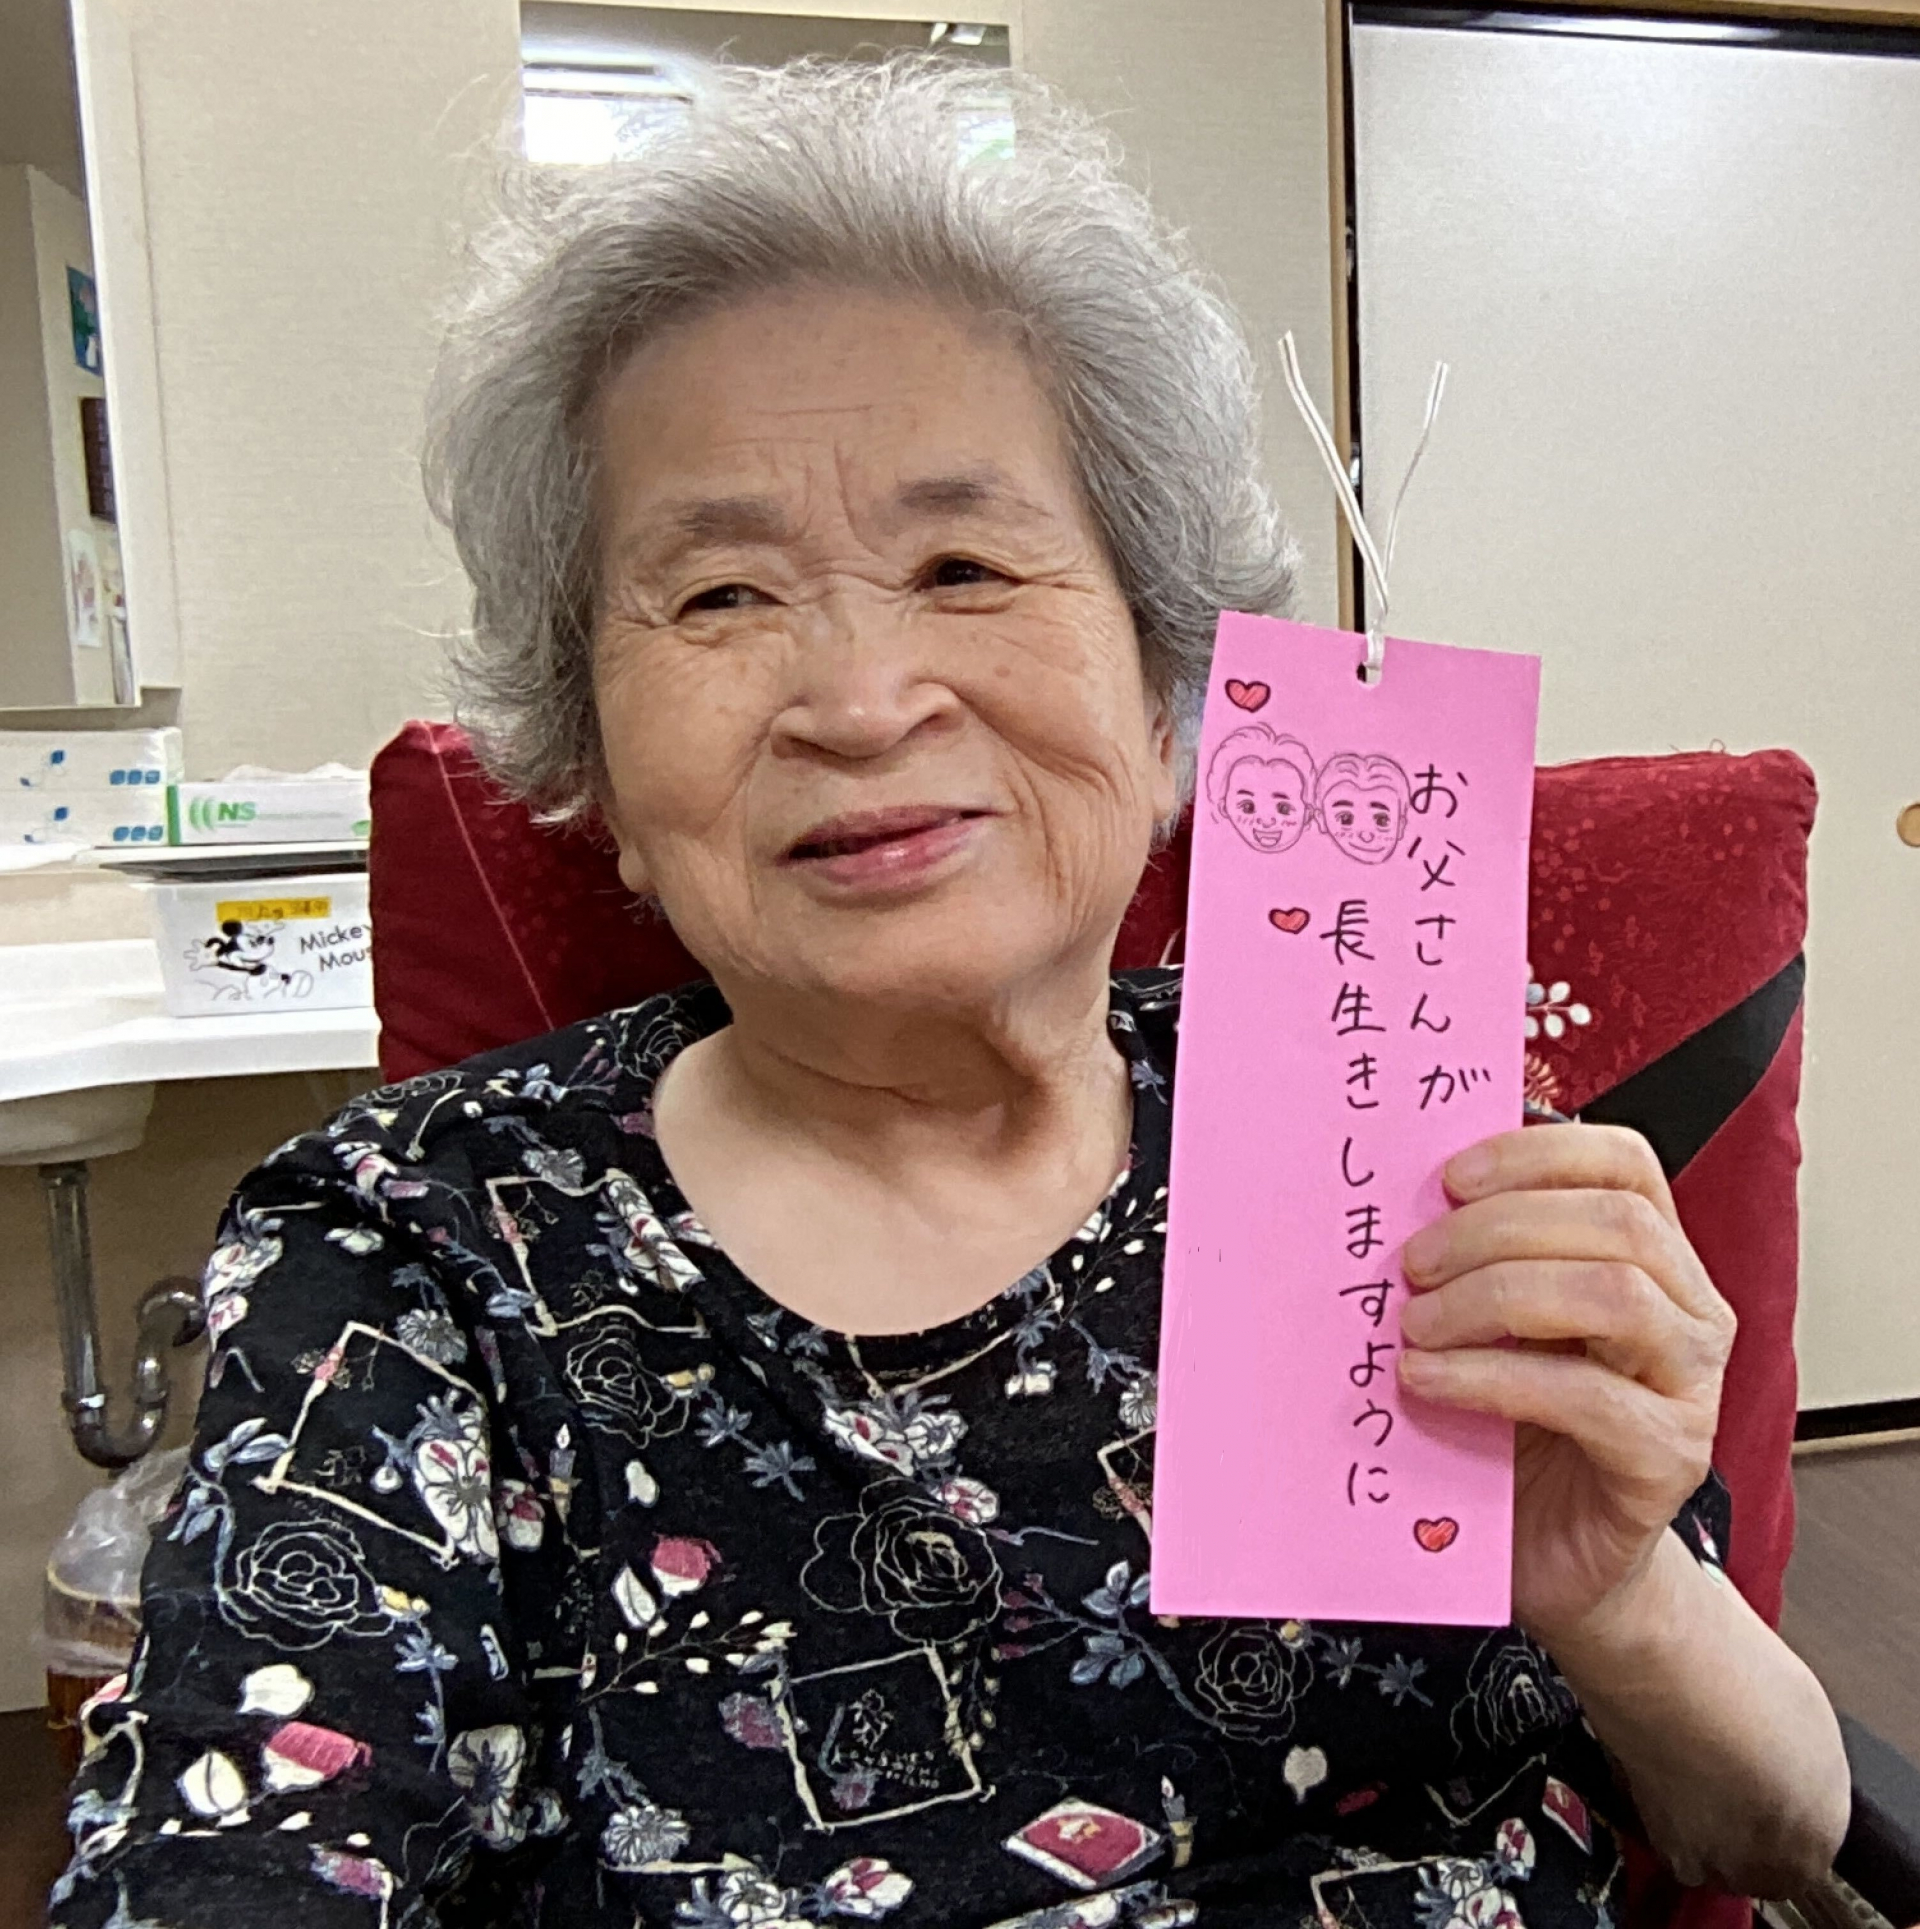 お父さんが
長生きしますように
NS
Mickey
Mous